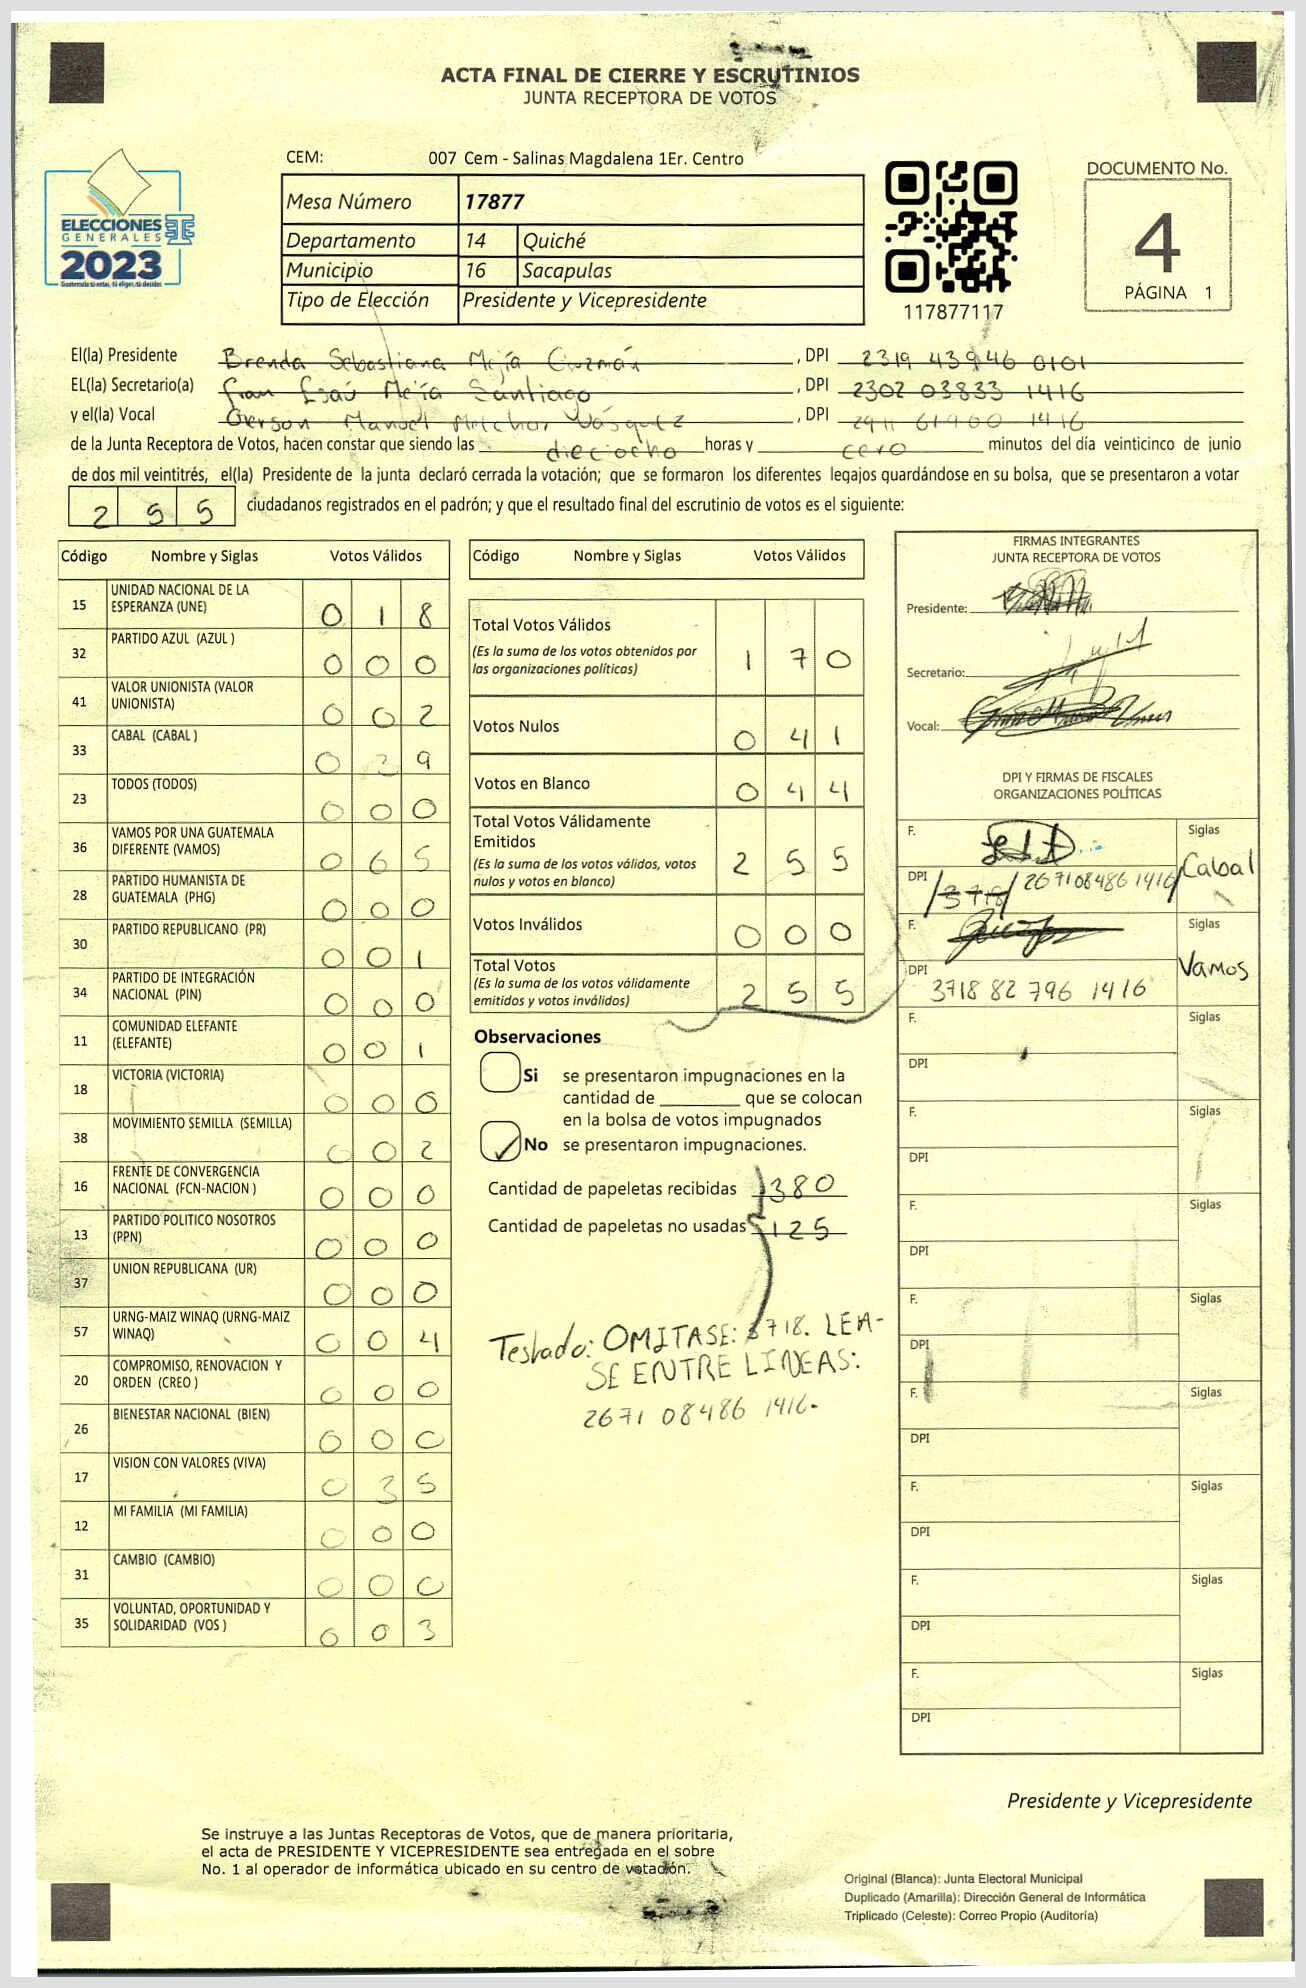 ACTA FINAL DE CIERRE Y ESCRUTINIOS
JUNTA RECEPTORA DE VOTOS
ELECCIONES
GENERALES
2023
CEM: 007 Cem - Salinas Magdalena 1Er. Centro
Mesa Número 17877
Departamento 14 Quiché
Municipio 16 Sacapulas
Tipo de Elección Presidente y Vicepresidente
117877117
DOCUMENTO No.
4
PÁGINA 1
El(la) Presidente Brenda Sebastiana Mejía Guzmán, DPI 2319 43946 0101
EL(la) Secretario(a) fran Esaú Mejía Santiago, DPI 2302 03833 1416
y el(la) Vocal Gerson Manuel Melchor Vásquez, DPI 2911 61900 1416
de la Junta Receptora de Votos, hacen constar que siendo las dieciocho horas y cero minutos del día veinticinco de junio
de dos mil veintitrés, el(la) Presidente de la junta declaró cerrada la votación; que se formaron los diferentes legajos guardándose en su bolsa, que se presentaron a votar
255 ciudadanos registrados en el padrón; y que el resultado final del escrutinio de votos es el siguiente:
Código Nombre y Siglas Votos Válidos
15 UNIDAD NACIONAL DE LA ESPERANZA (UNE) 0 1 8
32 PARTIDO AZUL (AZUL ) 0 0 0
41 VALOR UNIONISTA (VALOR UNIONISTA) 0 0 2
33 CABAL (CABAL ) 0 3 9
23 TODOS (TODOS) 0 0 0
36 VAMOS POR UNA GUATEMALA DIFERENTE (VAMOS) 0 6 5
28 PARTIDO HUMANISTA DE GUATEMALA (PHG) 0 0 0
30 PARTIDO REPUBLICANO (PR) 0 0 1
34 PARTIDO DE INTEGRACIÓN NACIONAL (PIN) 0 0 0
11 COMUNIDAD ELEFANTE (ELEFANTE) 0 0 1
18 VICTORIA (VICTORIA) 0 0 0
38 MOVIMIENTO SEMILLA (SEMILLA) 0 0 2
16 FRENTE DE CONVERGENCIA NACIONAL (FCN-NACION ) 0 0 0
13 PARTIDO POLITICO NOSOTROS (PPN) 0 0 0
37 UNION REPUBLICANA (UR) 0 0 0
57 URNG-MAIZ WINAQ (URNG-MAIZ WINAQ) 0 0 4
20 COMPROMISO, RENOVACION Y ORDEN (CREO ) 0 0 0
26 BIENESTAR NACIONAL (BIEN) 0 0 0
17 VISION CON VALORES (VIVA) 0 3 5
12 MI FAMILIA (MI FAMILIA) 0 0 0
31 CAMBIO (CAMBIO) 0 0 0
35 VOLUNTAD, OPORTUNIDAD Y SOLIDARIDAD (VOS ) 0 0 3
Código Nombre y Siglas Votos Válidos
Total Votos Válidos 1 7 0
(Es la suma de los votos obtenidos por
las organizaciones políticas)
Votos Nulos 0 4 1
Votos en Blanco 0 4 4
Total Votos Válidamente
Emitidos 2 5 5
(Es la suma de los votos válidos, votos
nulos y votos en blanco)
Votos Inválidos 0 0 0
Total Votos 2 5 5
(Es la suma de los votos válidamente
emitidos y votos inválidos)
Observaciones
Si se presentaron impugnaciones en la
cantidad de ________ que se colocan
en la bolsa de votos impugnados
No se presentaron impugnaciones.
Cantidad de papeletas recibidas 380
Cantidad de papeletas no usadas 125
Testado: OMITASE: 3718. LEA-
SE ENTRE LINEAS:
2671 08486 1416.
FIRMAS INTEGRANTES
JUNTA RECEPTORA DE VOTOS
Presidente:
Secretario:
Vocal:
DPI Y FIRMAS DE FISCALES
ORGANIZACIONES POLÍTICAS
F. Siglas
DPI /3718/ 2671 08486 1416/ Cabal
F. Siglas
DPI 3718 82 796 1416 Vamos
F. Siglas
DPI
F. Siglas
DPI
F. Siglas
DPI
F. Siglas
DPI
F. Siglas
DPI
F. Siglas
DPI
F. Siglas
DPI
F. Siglas
DPI
Presidente y Vicepresidente
Se instruye a las Juntas Receptoras de Votos, que de manera prioritaria,
el acta de PRESIDENTE Y VICEPRESIDENTE sea entregada en el sobre
No. 1 al operador de informática ubicado en su centro de votación.
Original (Blanca): Junta Electoral Municipal
Duplicado (Amarilla): Dirección General de Informática
Triplicado (Celeste): Correo Propio (Auditoría)